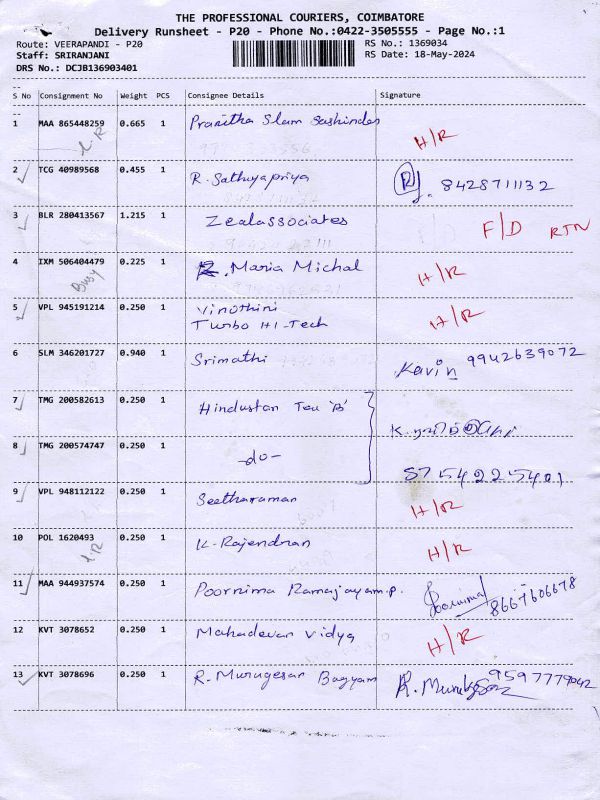 THE PROFESSIONAL COURIERS, COIMBATORE
Delivery Runsheet - P20 - Phone No.:0422-3505555 - Page No.:1
Route: VEERAPANDI - P20 RS No.: 1369034
Staff: SRIRANJANI RS Date: 18-May-2024
DRS No.: DCJB136903401
S No Consignment No Weight PCS Consignee Details Signature
1 MAA 865448259 0.665 1 Pranitha Slam Sashindas H/R
2 TCG 40989568 0.455 1 R. Sathyapriya 8428711132
3 BLR 280413567 1.215 1 Zealassociates F/D RTN
4 IXM 506404479 0.225 1 Maria Michal H/R
Busy
5 VPL 945191214 0.250 1 Vinothini H/R
Turbo HI-Tech
6 SLM 346201727 0.940 1 Srimathi Kavin 9942639072
7 TMG 200582613 0.250 1 Hindustan Tea 'B'
8 TMG 200574747 0.250 1 -do- 8754225401
9 VPL 948112122 0.250 1 Seetharaman H/R
10 POL 1620493 0.250 1 K. Rajendran H/R
11 MAA 944937574 0.250 1 Poornima Ramajayam.p. Poornima 8667606678
12 KVT 3078652 0.250 1 Mahadevan Vidya H/R
13 KVT 3078696 0.250 1 R. Murugesan Bagyam 9597779042